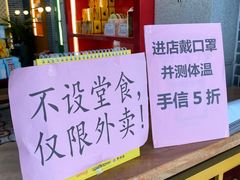 不设堂食，
仅限外卖！
进店戴口罩
并测体温
手信5折